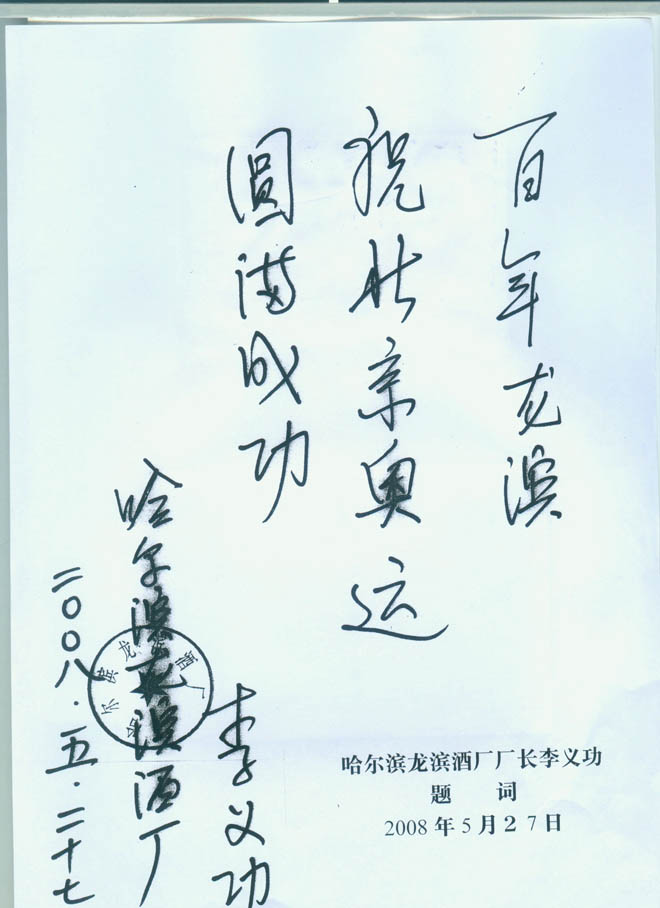 百年龙滨
祝北京奥运
圆满成功
哈尔滨龙滨酒厂
李义功
二〇〇八·五·二十七
哈尔滨龙滨酒厂
哈尔滨龙滨酒厂厂长李义功
题 词
2008年5月27日